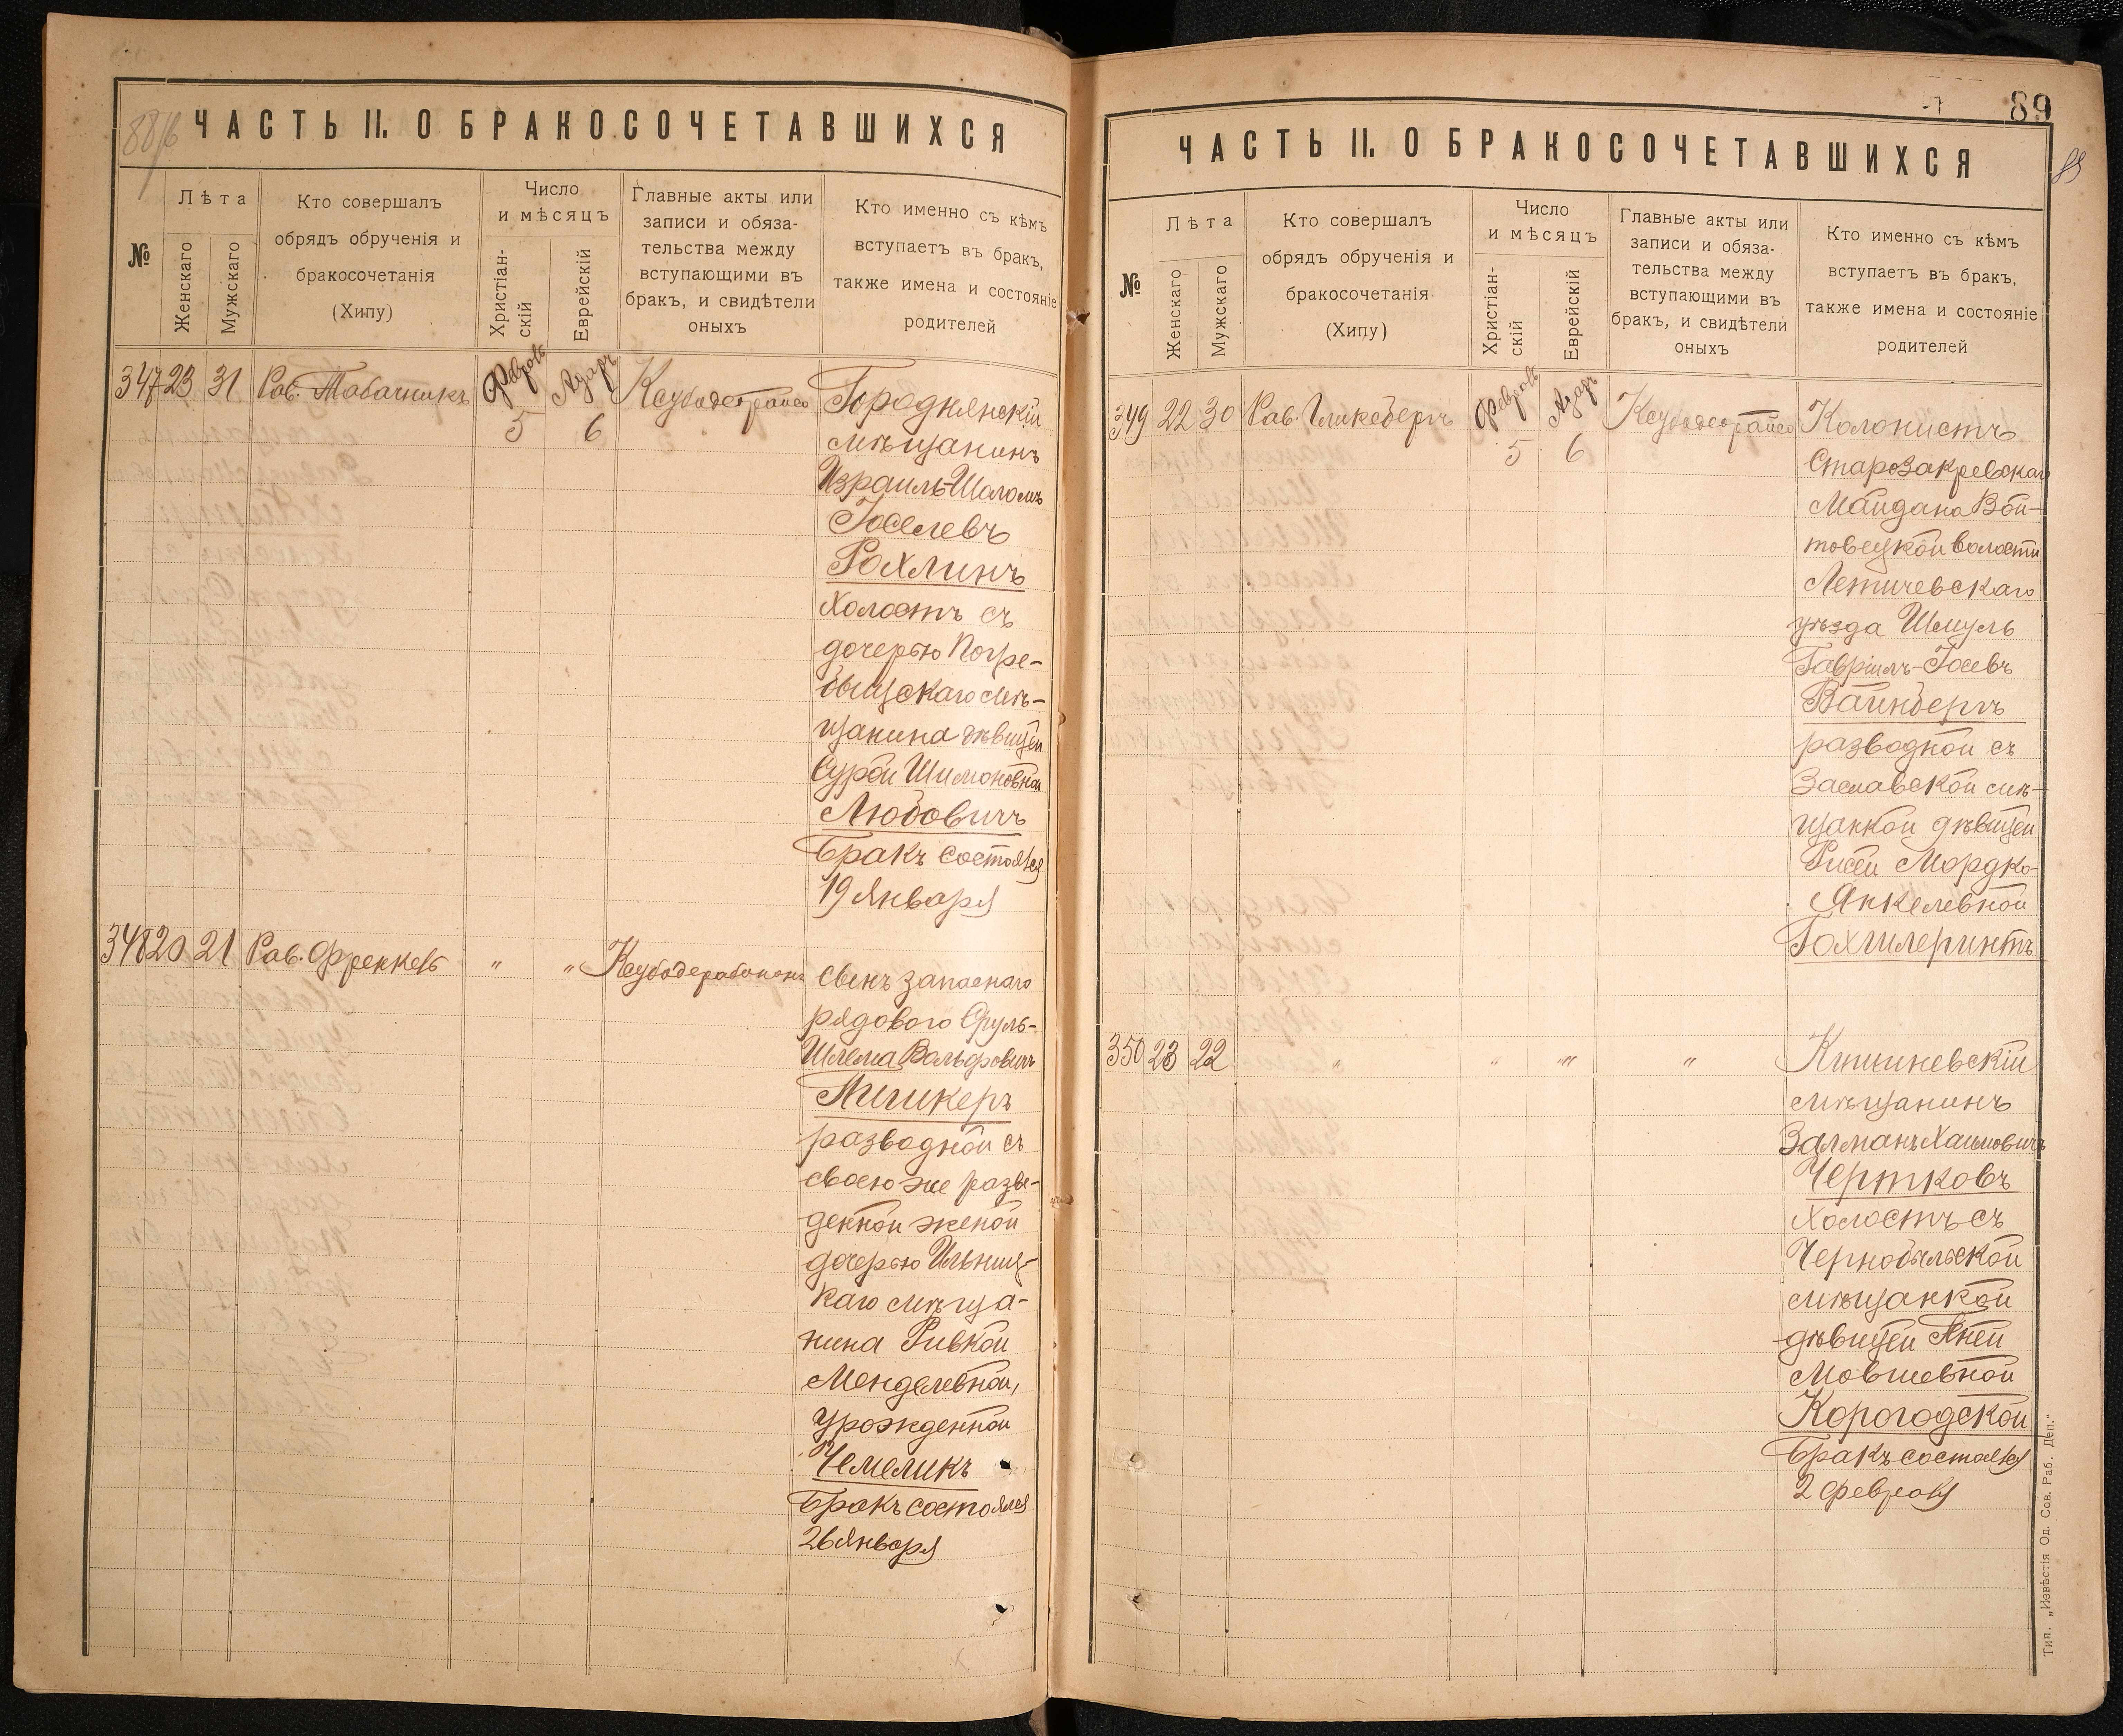 88/б
ЧАСТЬ II. О БРАКОСОЧЕТАВШИХСЯ
№
Лѣта
Женскаго
Мужскаго
Кто совершалъ
обрядъ обрученія и
бракосочетанія
(Хипу)
Число
и мѣсяцъ
Христіан-
скій
Еврейскій
Главные акты или
записи и обяза-
тельства между
вступающими въ
бракъ, и свидѣтели
оныхъ
Кто именно съ кѣмъ
вступаетъ въ бракъ,
также имена и состояніе
родителей
347 23 31 Рав. Табачникъ
Февраль 5
Адаръ 6
Ксубодеорайсо
Городнянскій
мѣщанинъ
Израиль-Шоломъ
Іоселевъ
Рохлинъ
холостъ съ
дочерью Погре-
бищскаго мѣ-
щанина дѣвицей
Сурой Шимоновной
Любовичъ
Бракъ состоялся
19 Января
348 20 21 Рав. Френкель
" " Ксубодерабонон
Сынъ запаснаго
рядового Сруль-
Шлема Вольфовичъ
Пичикеръ
разводной съ
своею же разве-
денной женой
дочерью Ильниц-
каго мѣща-
нина Ривкой
Менделевной,
урожденной
Чемеликъ
Бракъ состоялся
26 Января
89
89
ЧАСТЬ II. О БРАКОСОЧЕТАВШИХСЯ
№
Лѣта
Женскаго
Мужскаго
Кто совершалъ
обрядъ обрученія и
бракосочетанія
(Хипу)
Число
и мѣсяцъ
Христіан-
скій
Еврейскій
Главные акты или
записи и обяза-
тельства между
вступающими въ
бракъ, и свидѣтели
оныхъ
Кто именно съ кѣмъ
вступаетъ въ бракъ,
также имена и состояніе
родителей
349 22 30 Рав. Гликсбергъ
Февраль 5
Адаръ 6
Ксубодеорайсо
Колонистъ
Старозакревскаго
Майдана Вой-
товецкой волости
Летичевскаго
уѣзда Шмуль
Гавріилъ-Іосевъ
Вайнбергъ
разводной съ
Заславской мѣ-
щанкой дѣвицей
Рисей Мордко-
Янкелевной
Гохгилеринтъ
350 23 22 " " " "
Кишиневскій
мѣщанинъ
Залманъ Хаимовичъ
Чертковъ
холостъ съ
Чернобыльской
мѣщанкой
дѣвицей Яней
Мовшевной
Корогодской
Бракъ состоялся
2 февраля
Тип. „Извѣстія Од. Сов. Раб. Деп."